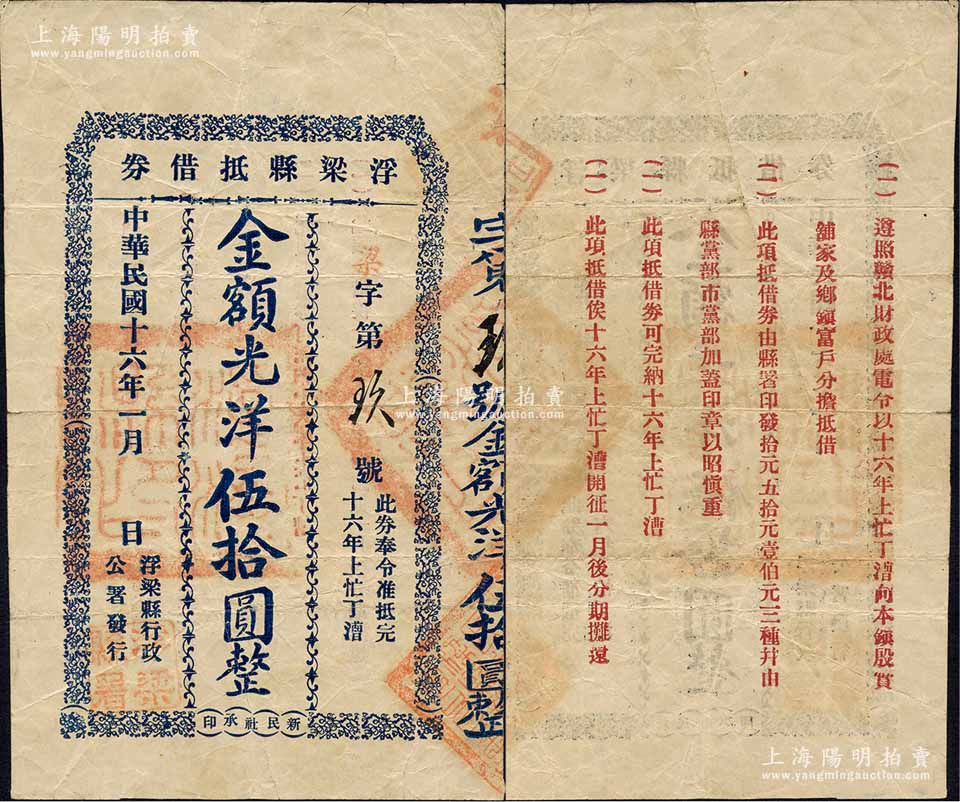 上海陽明拍賣
www.yangmingauction.com
浮梁縣抵借券
梁字第玖號
此券奉令准抵完
十六年上忙丁漕
金額光洋伍拾圓整
中華民國十六年一月 日
浮梁縣行政
公署發行
新民社承印
字第玖號金額光洋伍拾圓整
(一)遵照贛北財政處電令以十六年上忙丁漕向本鎮殷實
舖家及鄉鎮富戶分擔抵借
(一)此項抵借券由縣署印發拾元五拾元壹伯元三種幷由
縣黨部市黨部加蓋印章以昭慎重
(一)此項抵借券可完納十六年上忙丁漕
(一)此項抵借俟十六年上忙丁漕開征一月後分期攤還
上海陽明拍賣
www.yangmingauction.com
上海陽明拍賣
www.yangmingauction.com